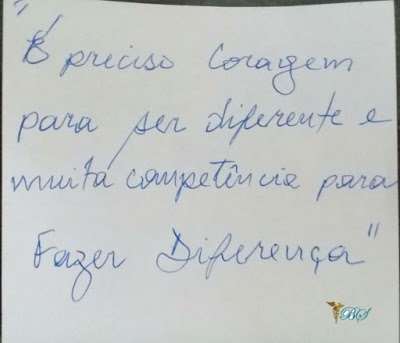 "É preciso Coragem
para ser diferente e
muita competência para
Fazer Diferença"
BS